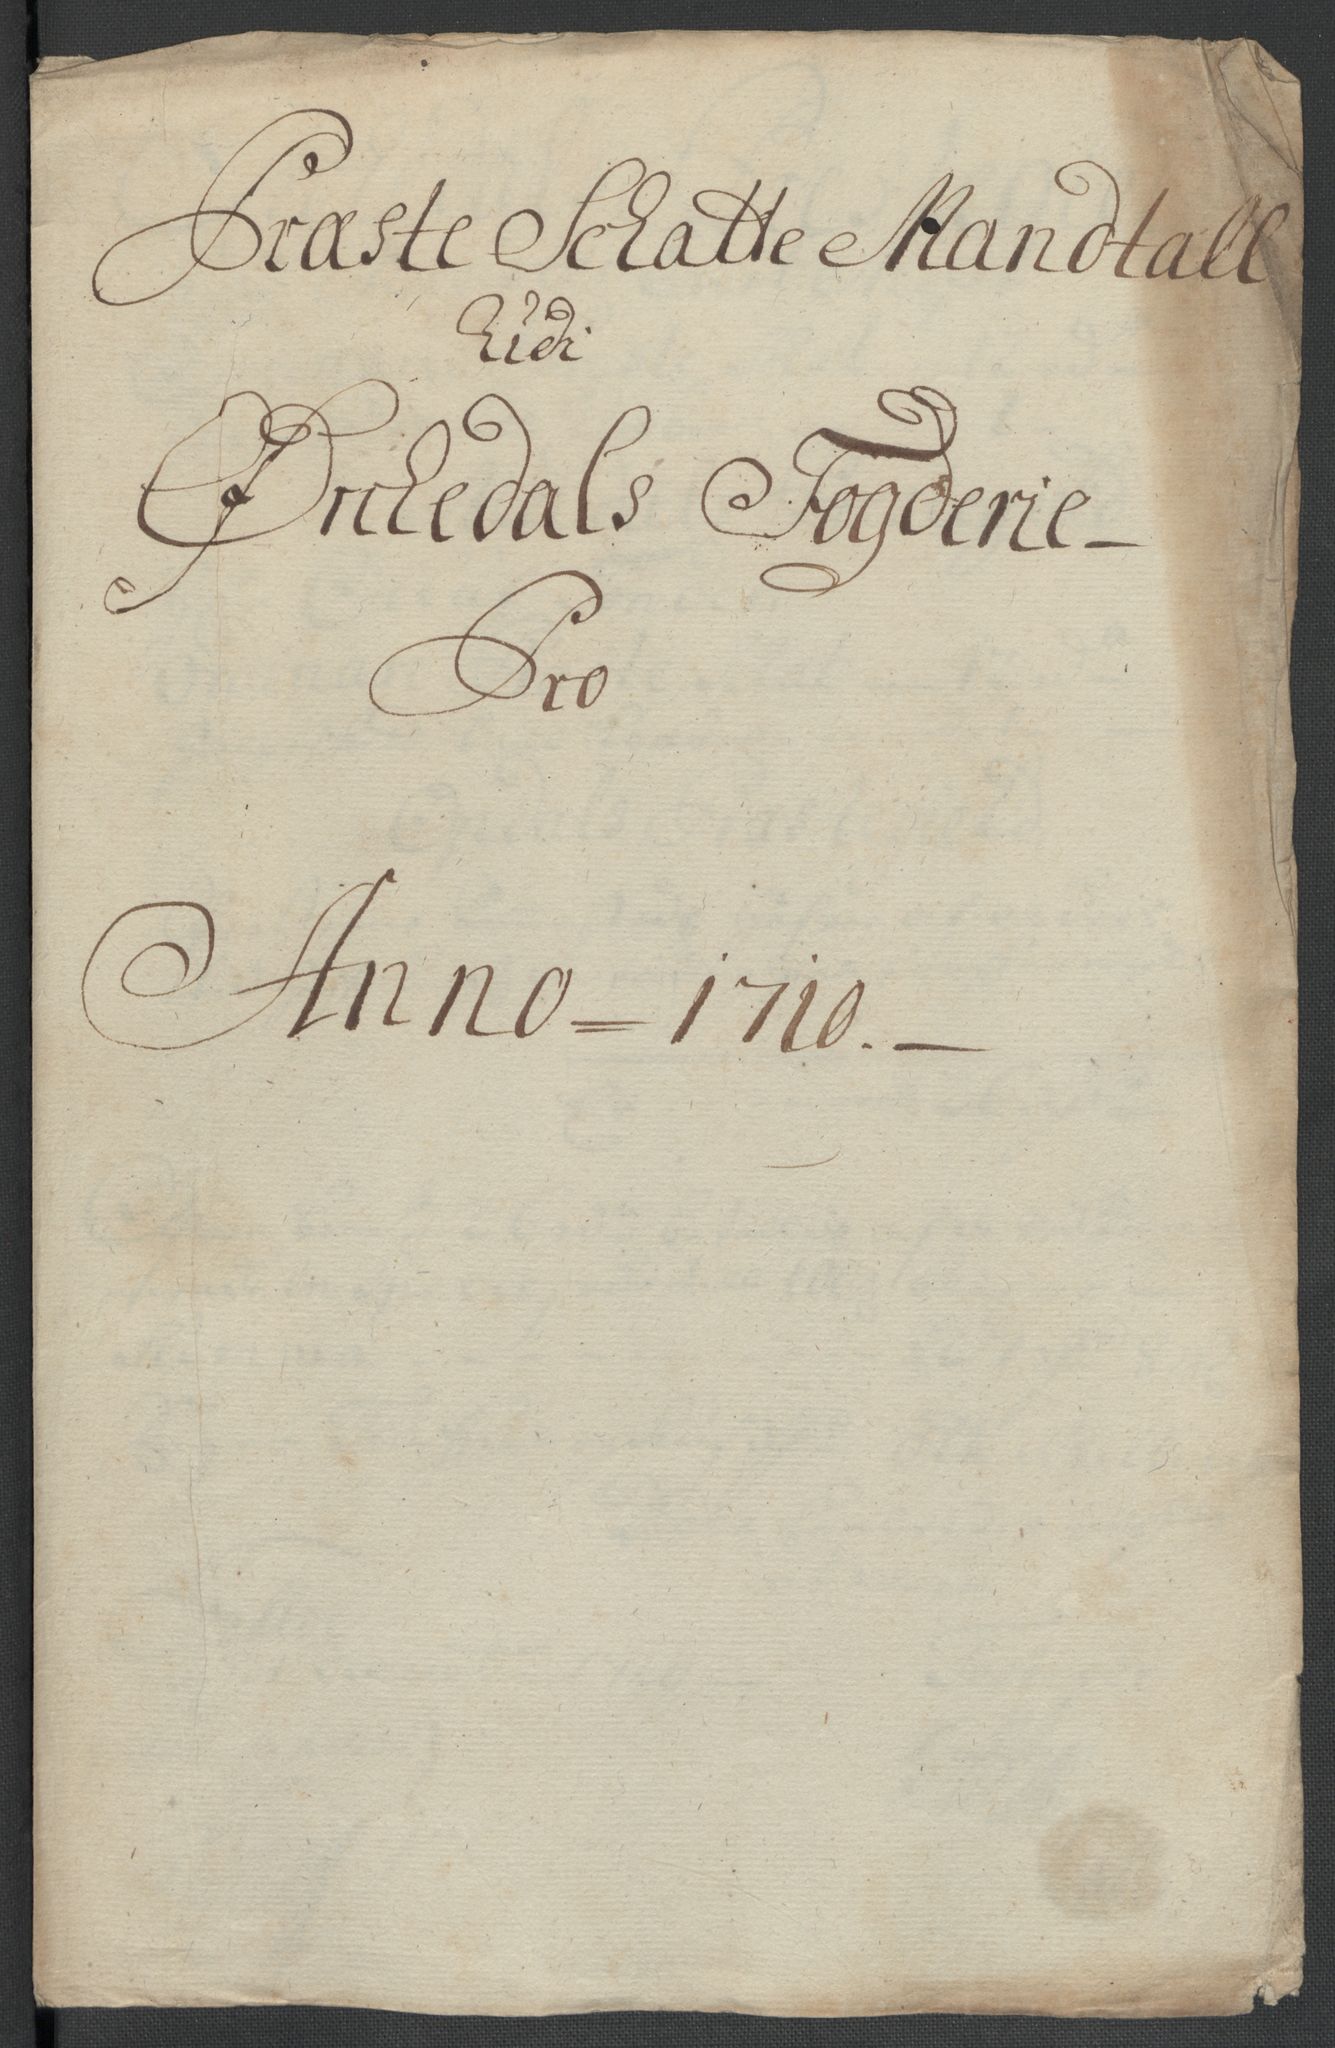 Præste Schatte Mandtall
Udi
Ørchedals Fogderie
Pro
Anno = 1710. -